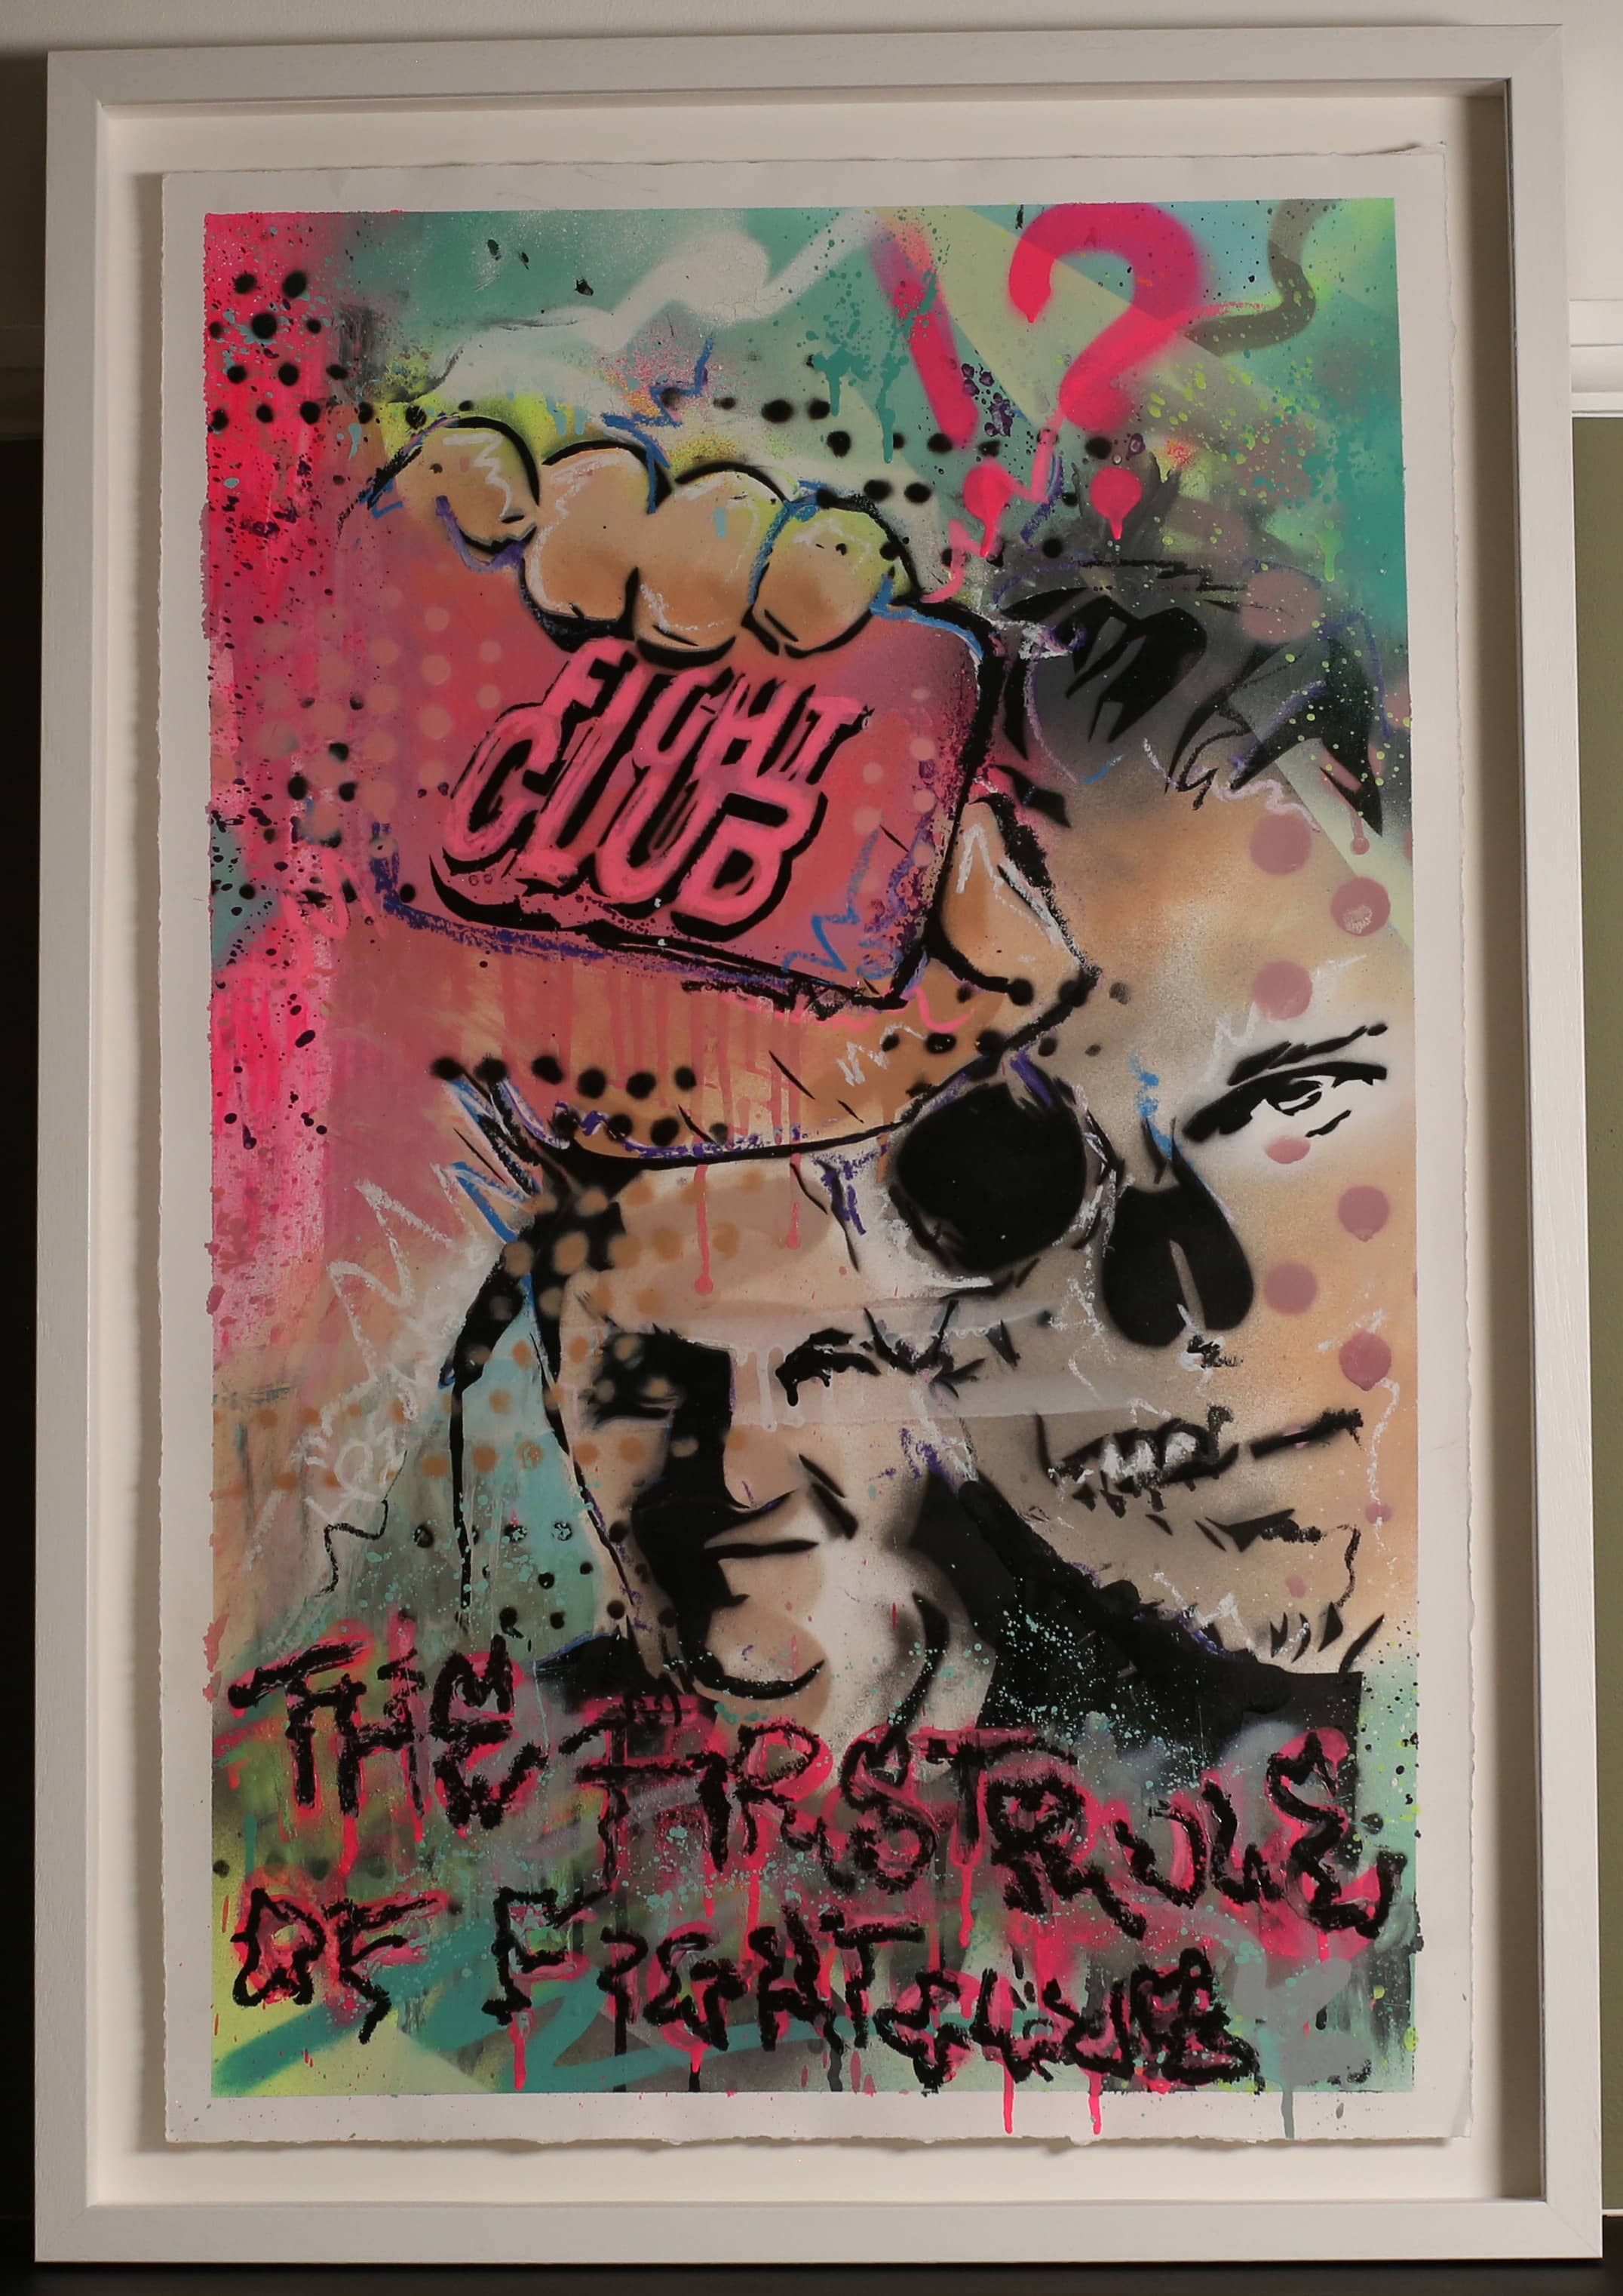 !?
FIGHT
CLUB
THE FIRST RULE
OF FIGHT CLUB